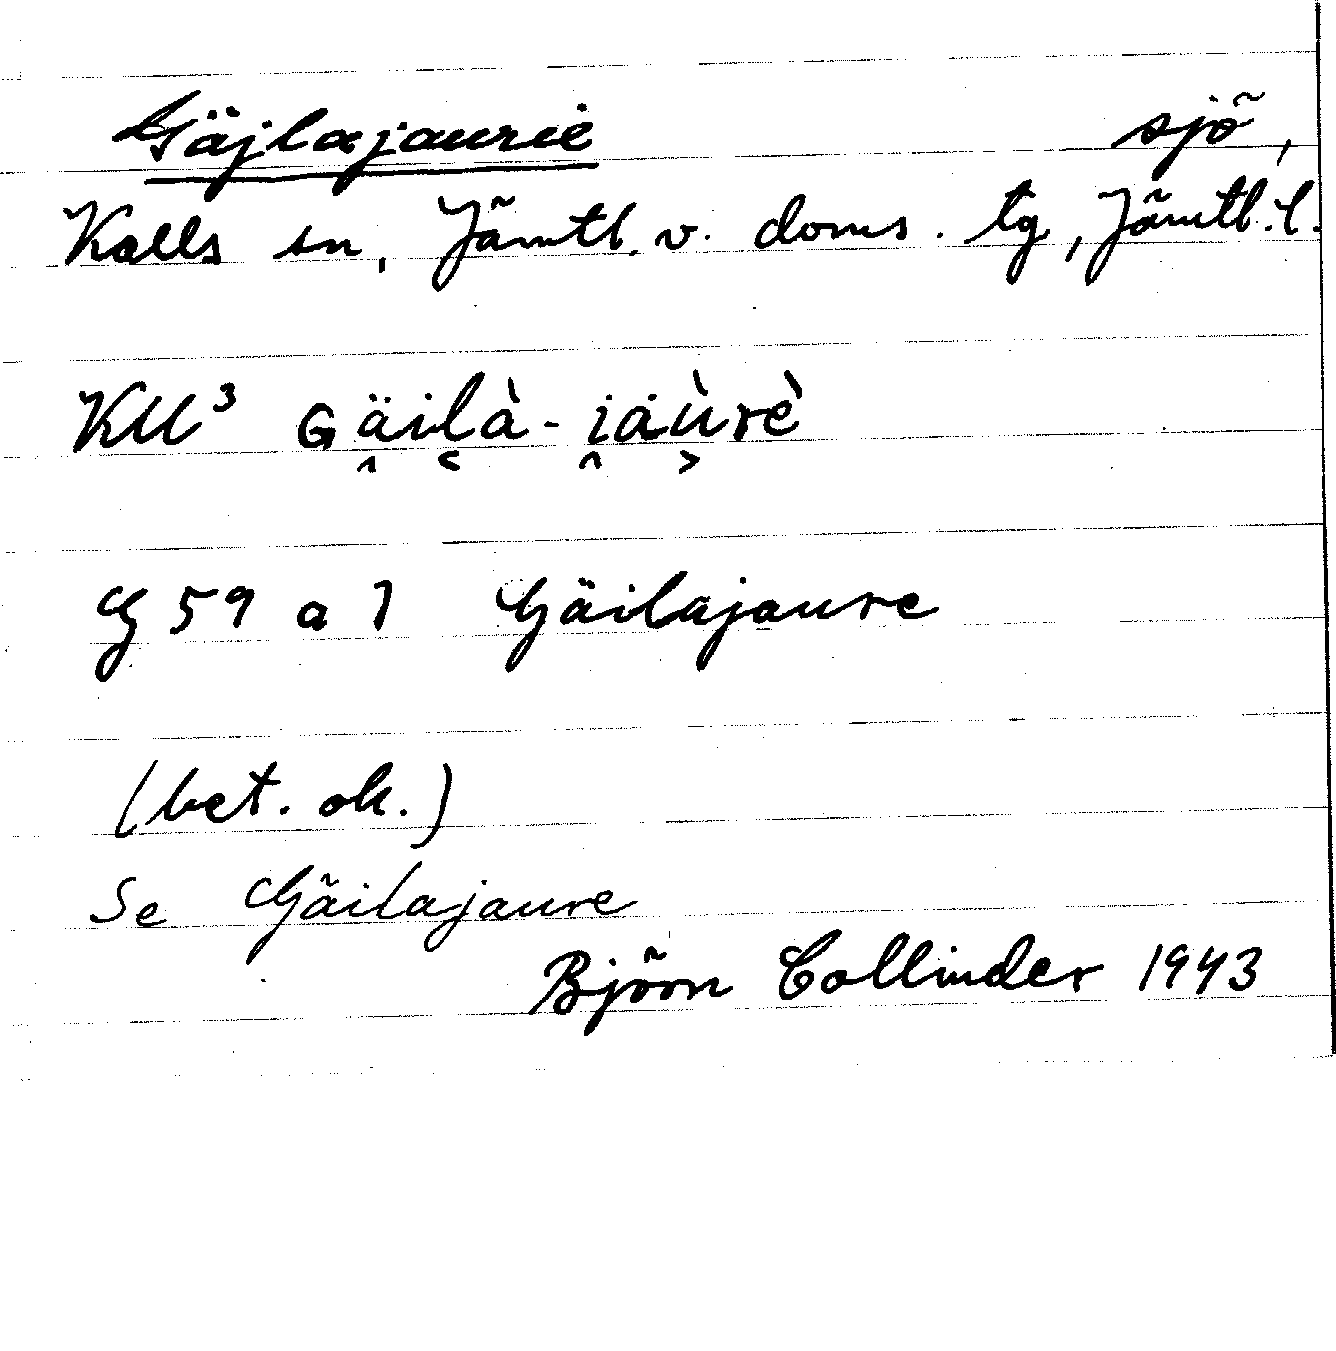 Gäjlajaurie sjö,
Kalls sn, Jämtl. v. doms. tg, Jämtl. l.
KU³ Gäilà-iaùrè
G 59 a 7 Gäilajaure
(bet. ok.)
Se Gäilajaure
Björn Collinder 1943